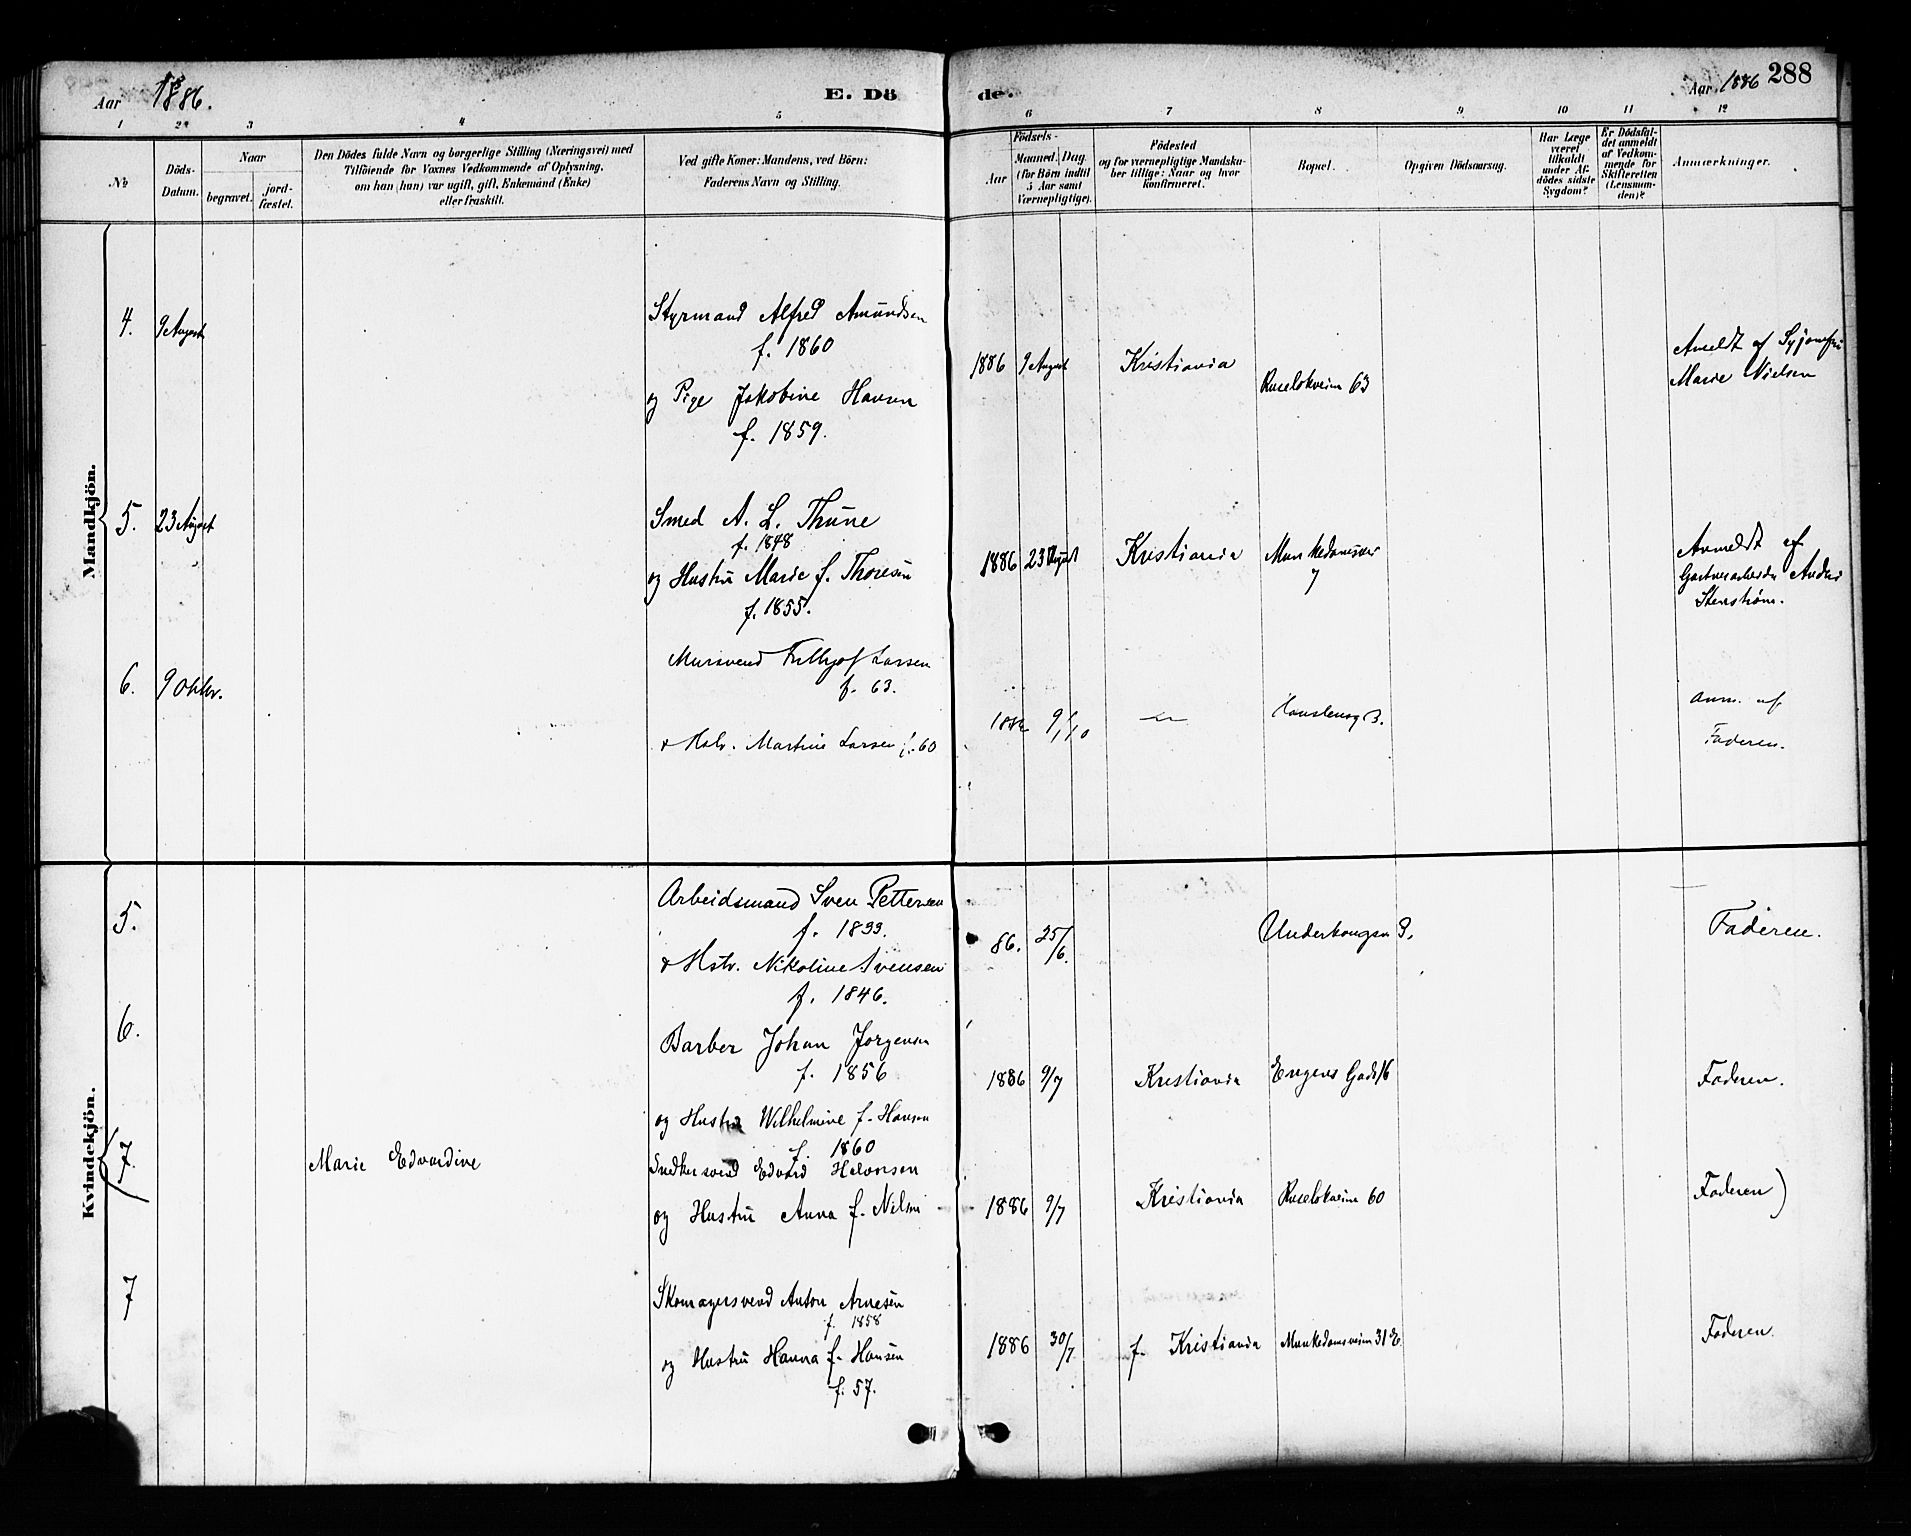 Aar 1886.
E. Dö
de.
Aar 1886
288
1
2
3
4
5
6
7
8
9
10
11
12
No
Döds-
Datum.
Naar
begravet.
jord-
fæstet.
Den Dödes fulde Navn og borgerlige Stilling (Næringsvei) med
Tilföiende for Voxnes Vedkommende af Oplysning,
om han (hun) var ugift, gift, Enkemand (Enke)
eller fraskilt.
Ved gifte Koner: Mandens, ved Börn:
Faderens Navn og Stilling.
Födsels-
Aar
Maaned. Dag.
(for Börn indtil
5 Aar samt
Værnepligtige).
Födested
og for værnepligtige Mandsku-
ber tillige: Naar og hvor
konfirmeret.
Bopæl.
Opgiven Dödsaarsag.
Har Læge
været
tilkaldt
under Af-
dödes sidste
Sygdom?
Er Dödsfal-
det anmeldt
af Vedkom-
mende for
Skifteretten
(Lensman-
den)?
Anmærkninger.
Mandkjön.
4.
9 August
Styrmand Alfred Amundsen
f. 1860
og Pige Jakobine Hansen
f. 1859.
1886
9 August
Kristiania
Ruselökveien 63
Anmeldt af Syjomfru
Marie Nielsen
5.
23 August
Smed A. L. Thune
f. 1848
og Hustru Marie f. Thoresen
f. 1855.
1886
23 August
Kristiania
Munkedamsvei
7
Anmeldt af
Gartnerarbeider Anders
Stenström.
6.
9 Oktbr.
Mursvend Frithjof Larsen
f. 63.
& Hstr. Martine Larsen f. 60
1886
9/10
3.
anm. af
Faderen.
Kvindekjön.
5.
Arbeidsmand Sven Pettersen
f. 1833.
& Hstr. Nikoline Svensen
f. 1846.
86.
25/6.
Faderen.
6.
Barber Johan Jörgensen
f. 1856
og Hustru Wilhelmine f. Hansen
f. 1860
1886
9/7
Kristiania
Engens Gade 16
Faderen.
7.
Marie Edvardine
Snedkersvend Edvard Halvorsen
og Hustru Anna f. Nilsen
1886
9/7
Kristiania
Ruselökveien 60
Faderen)
7
Skomagersvend Anton Arnesen
f. 1858
og Hustru Hanna f. Hansen
f. 57.
1886
30/7
f. Kristiania
Munkedamsveien 31 E.
Faderen.